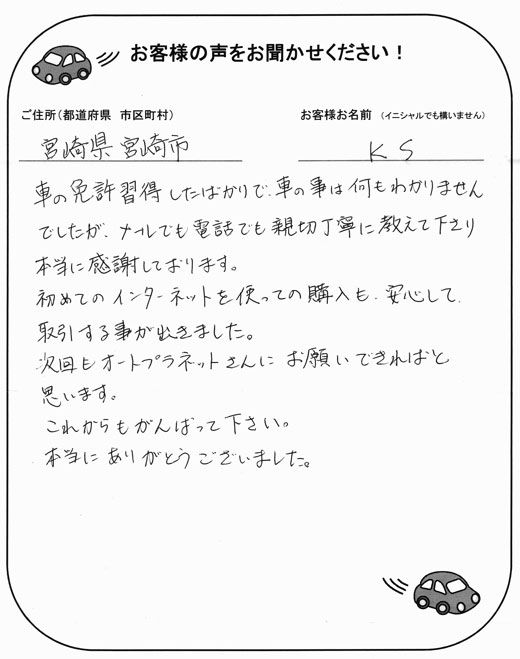 お客様の声をお聞かせください！
ご住所（都道府県　市区町村）
お客様お名前　（イニシャルでも構いません）
宮崎県 宮崎市
K S
車の免許習得したばかりで、車の事は何もわかりません
でしたが、メールでも電話でも親切丁寧に教えて下さり
本当に感謝しております。
初めてのインターネットを使っての購入も、安心して、
取引する事が出きました。
次回もオートプラネットさんに お願いできればと
思います。
これからもがんばって下さい。
本当に ありがとうございました。